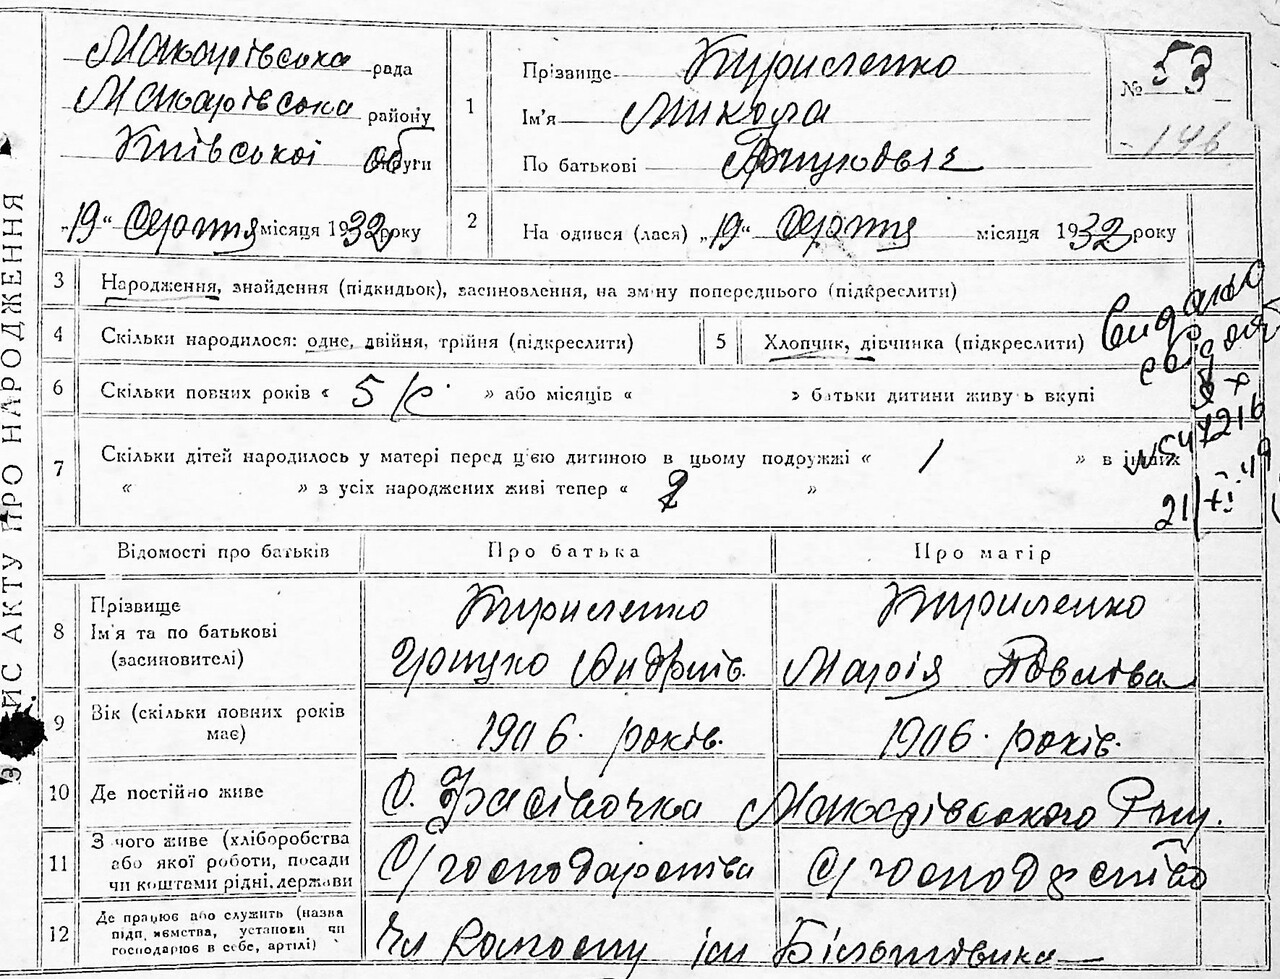 ЗАПИС АКТУ ПРО НАРОДЖЕННЯ
Макарівська рада
Макарівська району
Київської об округи
„19“ Серпня місяця 1932 року
1
Прізвище Кириленко
Ім'я Микола
По батькові Грицкович
№ 53
146
2
На одився (лася) „19“ Серпня місяця 1932 року
3 Народження, знайдення (підкидьок), засиновлення, на зміну попереднього (підкреслити)
4 Скільки народилося: одне, двійня, трійня (підкреслити)
5 Хлопчик, дівчинка (підкреслити)
Видано
свідоц
6 Скільки повних років « 5 » або місяців « » батьки дитини живу ь вкупі
7 Скільки дітей народилось у матері перед ц'ею дитиною в цьому подружжі « 1 » в інших
« » з усіх народжених живі тепер « 2 »
21/XI 49
Відомості про батьків
Про батька
Про матір
8
Прізвище
Ім'я та по батькові
(засиновителі)
Кириленко
Грицко Андріїв.
Кириленко
Марія Павлова
9
Вік (скільки повних років
має)
1906. років.
1906. років.
10 Де постійно живе
С. Фасівочка Макарівського Рну.
11
З чого живе (хліборобства
або якої роботи, посади
чи коштами рідні, держави
С/господарства
С/господрство
12
Де працює або служить (назва
підп иємства, установи чи
господарює в себе, артілі)
Чл Колгоспу ім Більшовика